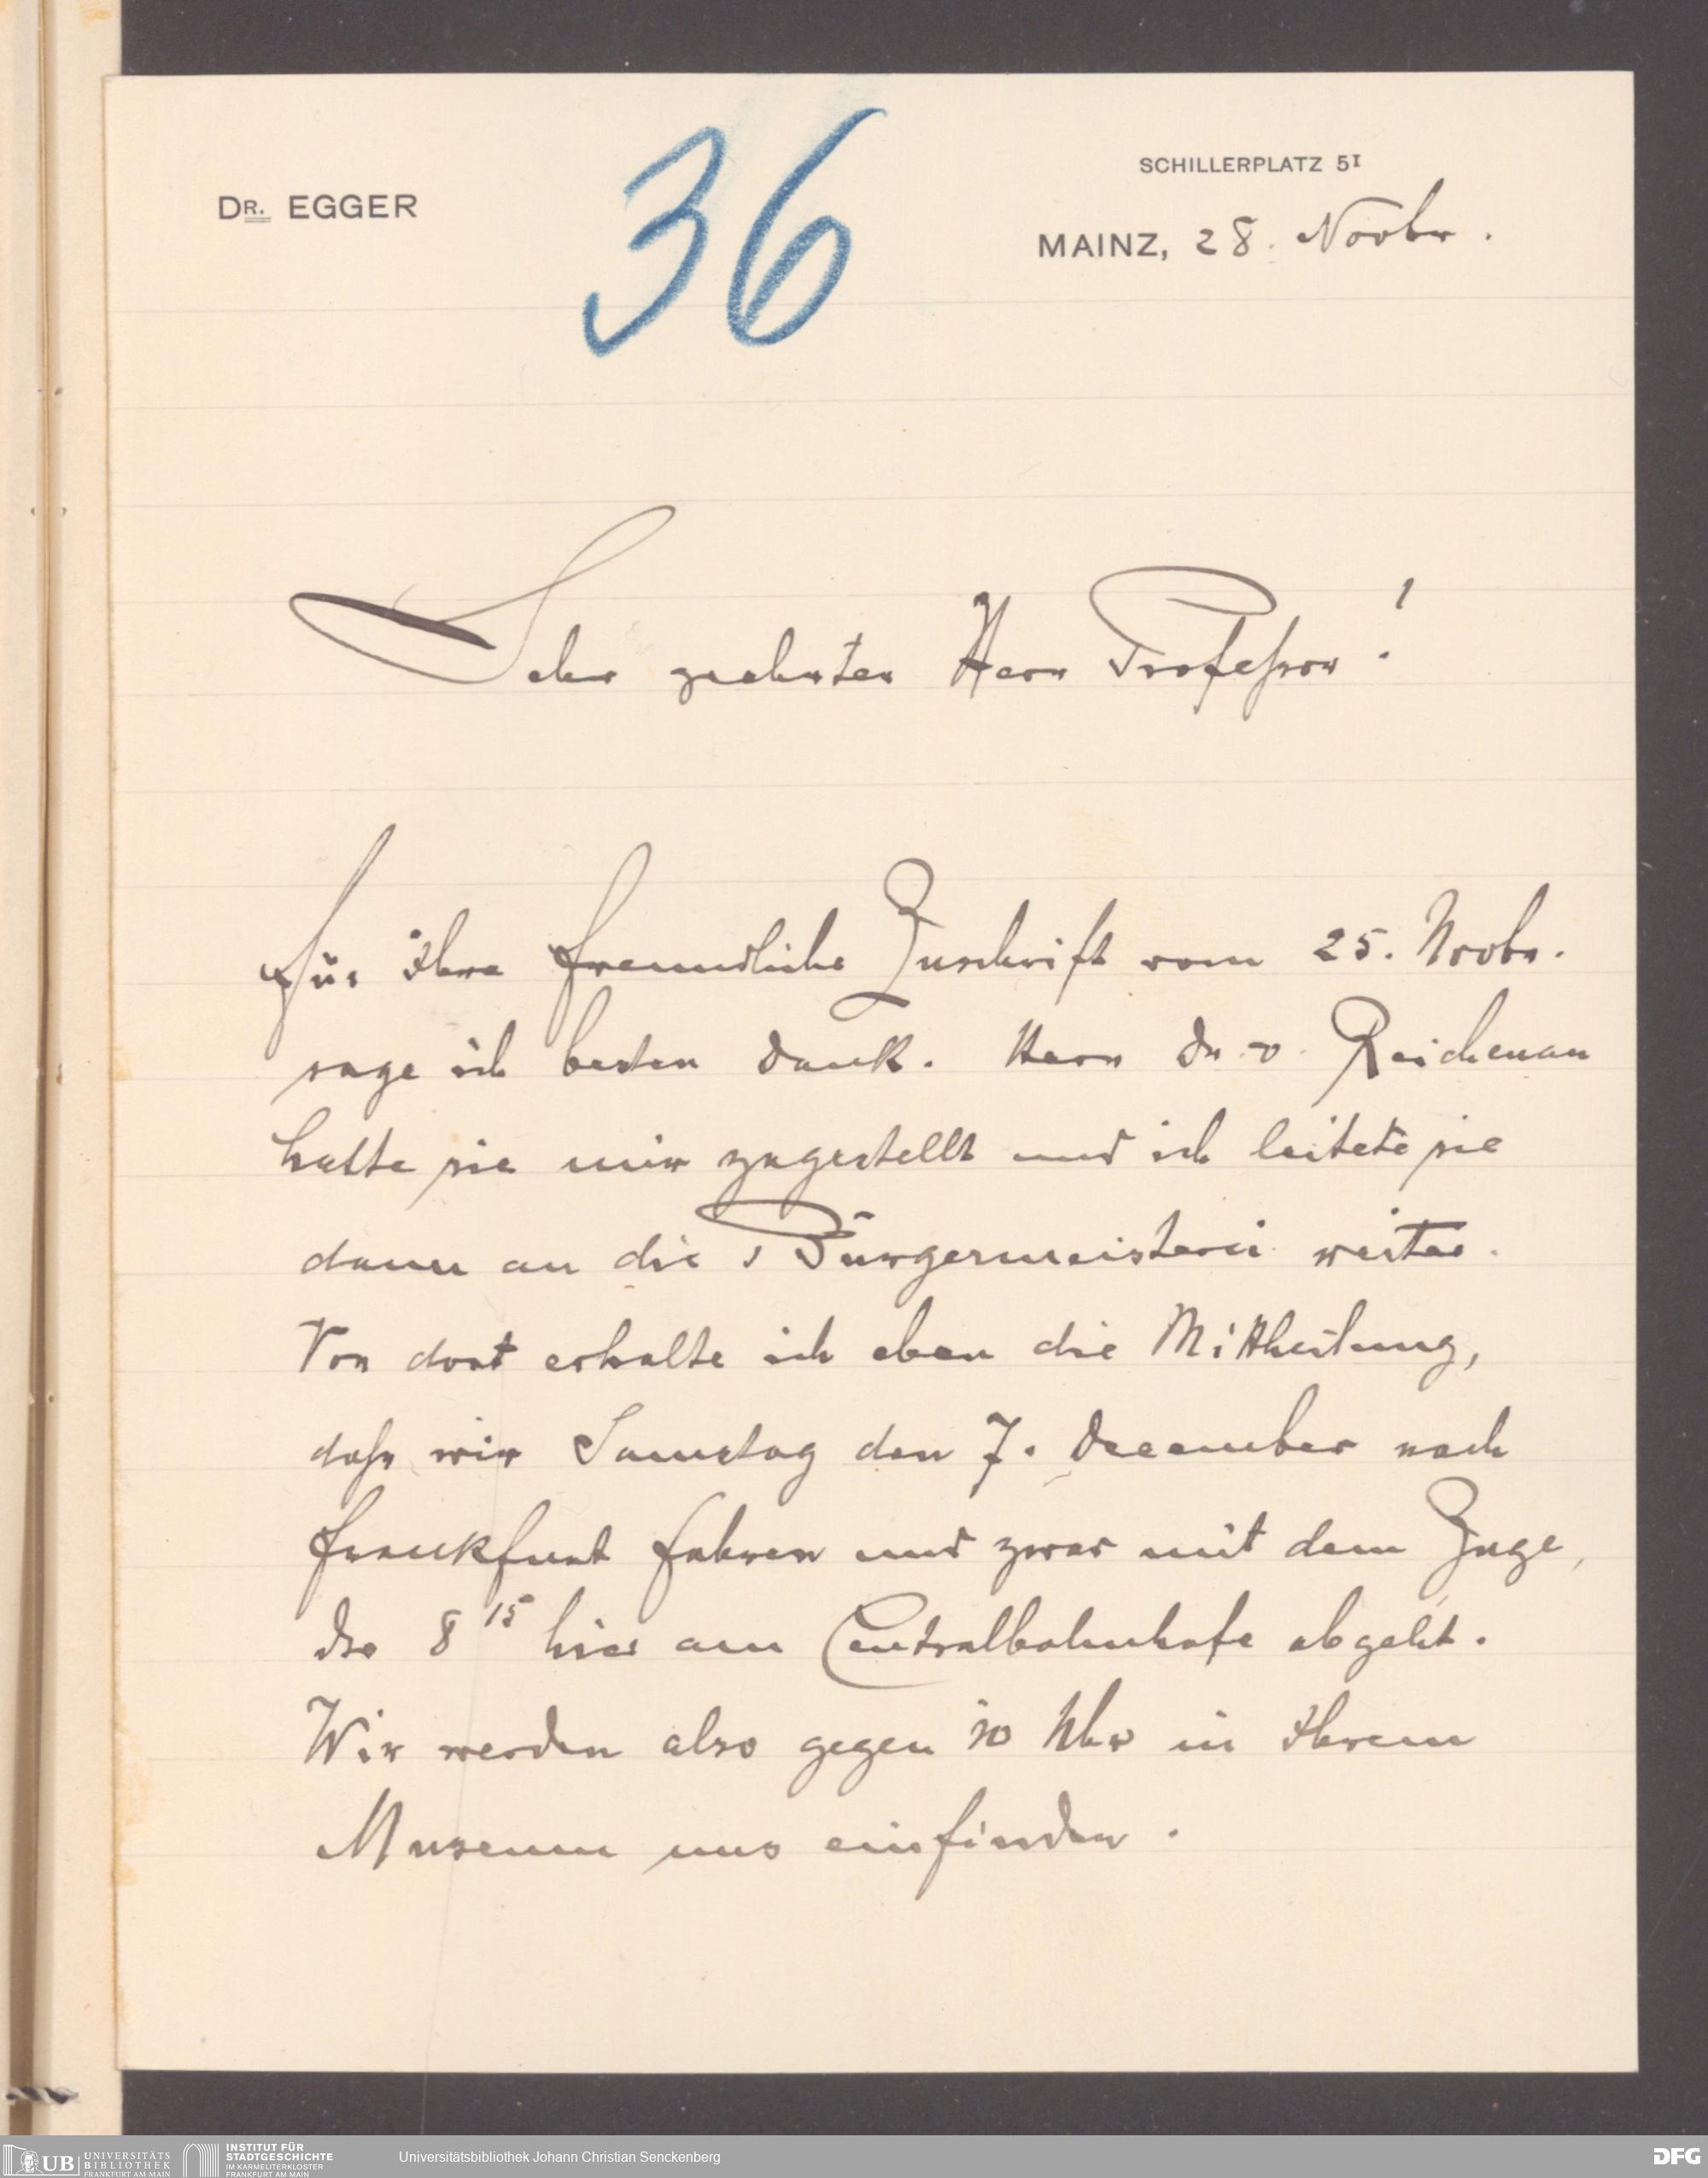 DR. EGGER
36
SCHILLERPLATZ 5I
MAINZ, 28. Novbr.
Sehr geehrter Herr Professor!
Für Ihre freundliche Zuschrift vom 25. Novbr.
sage ich besten Dank. Herr Dr. v. Reichenau
hatte sie mir zugestellt und ich leitete sie
dann an die Bürgermeisterei weiter.
Von dort erhalte ich eben die Mittheilung,
dass wir Samstag den 7. December nach
Frankfurt fahren und zwar mit dem Zuge,
der 8 15 hier am Centralbahnhofe abgeht.
Wir werden also gegen 10 Uhr in Ihrem
Museum uns einfinden.
UB UNIVERSITÄTS BIBLIOTHEK FRANKFURT AM MAIN
INSTITUT FÜR STADTGESCHICHTE IM KARMELITERKLOSTER FRANKFURT AM MAIN
Universitätsbibliothek Johann Christian Senckenberg
DFG